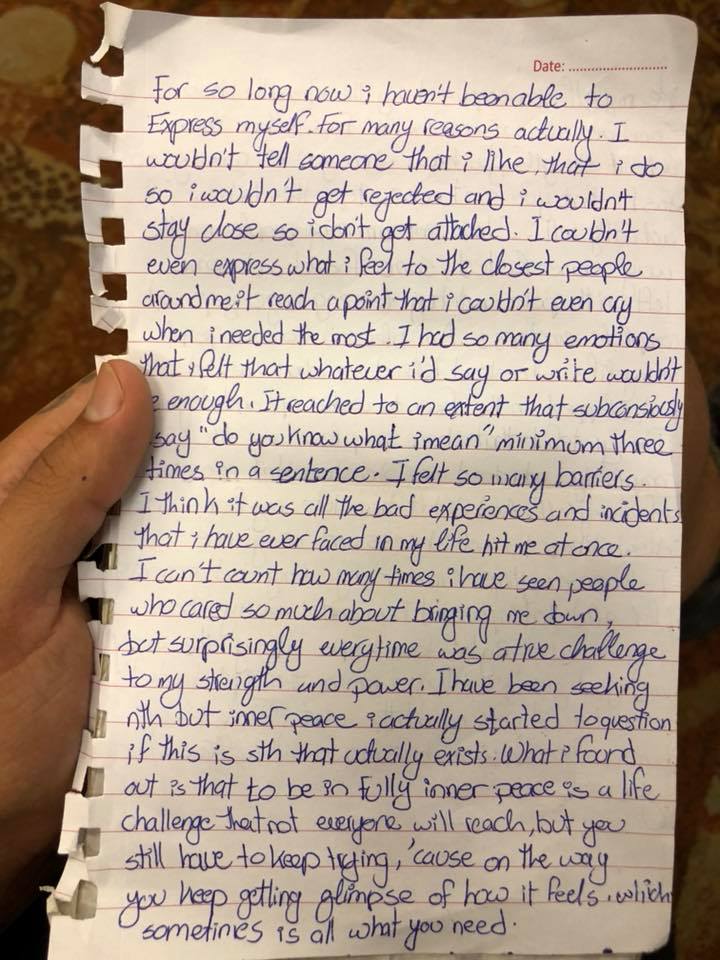 Date: ............................
For so long now i haven't been able to
Express myself. For many reasons actually. I
wouldn't tell someone that i like, that i do
so i wouldn't get rejected and i wouldn't
stay close so i don't get attached. I couldn't
even express what i feel to the closest people
around me it reach a point that i couldn't even cry
when i needed the most. I had so many emotions
that i felt that whatever i'd say or write wouldn't
enough. It reached to an extent that subconsiously
say "do you know what i mean" minimum three
times in a sentence. I felt so many barriers.
I think it was all the bad experiences and incidents
that i have ever faced in my life hit me at once.
I can't count how many times i have seen people
who cared so much about bringing me down,
but surprisingly everytime was a true challenge
to my strength and power. I have been seeking
nth but inner peace i actually started to question
if this is sth that actually exists. What i found
out is that to be in fully inner peace is a life
challenge that not everyone will reach, but you
still have to keep trying, 'cause on the way
you keep getting glimpse of how it feels. which
sometimes is all what you need.